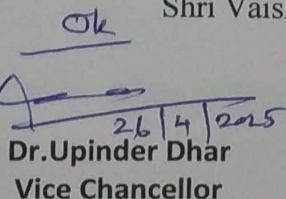 Shri Vais
Ok
26/4/2025
Dr.Upinder Dhar
Vice Chancellor